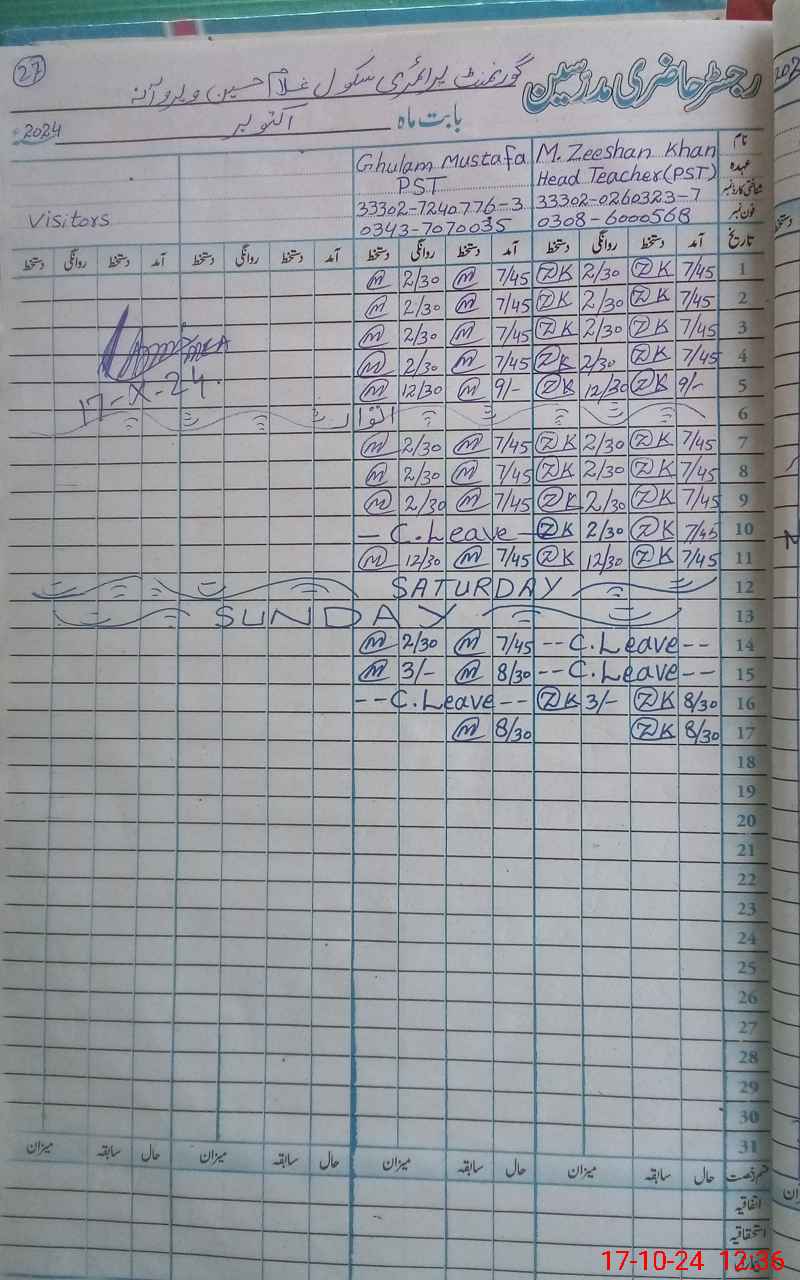 27
رجسٹر حاضری مدرسین گورنمنٹ پرائمری سکول غلام حسین ویروآنہ
بابت ماہ اکتوبر 2024ء
نام M. Zeeshan Khan Ghulam Mustafa
عہدہ Head Teacher(PST) PST
شناختی کارڈ نمبر 33302-0260323-7 33302-7240776-3
فون نمبر 0308-6000568 0343-7070035 Visitors
تاریخ آمد دستخط روانگی دستخط آمد دستخط روانگی دستخط آمد دستخط روانگی دستخط آمد دستخط روانگی دستخط
1 7/45 ZK 2/30 ZK 7/45 M 2/30 M
2 7/45 ZK 2/30 ZK 7/45 M 2/30 M
3 7/45 ZK 2/30 ZK 7/45 M 2/30 M
4 7/45 ZK 2/30 ZK 7/45 M 2/30 M
5 9/- ZK 12/30 ZK 9/- M 12/30 M
17-X-24
6 اتوار
7 7/45 ZK 2/30 ZK 7/45 M 2/30 M
8 7/45 ZK 2/30 ZK 7/45 M 2/30 M
9 7/45 ZK 2/30 ZK 7/45 M 2/30 M
10 7/45 ZK 2/30 ZK - C. Leave -
11 7/45 ZK 12/30 ZK 7/45 M 12/30 M
12 SATURDAY
13 SUNDAY
14 --C. Leave-- 7/45 M 2/30 M
15 --C. Leave-- 8/30 M 3/- M
16 8/30 ZK 3/- ZK --C. Leave--
17 8/30 ZK 8/30 M
18
19
20
21
22
23
24
25
26
27
28
29
30
31
قسم رخصت حال سابقہ میزان حال سابقہ میزان حال سابقہ میزان حال سابقہ میزان
اتفاقیہ
استحقاقیہ
17-10-24 12:36